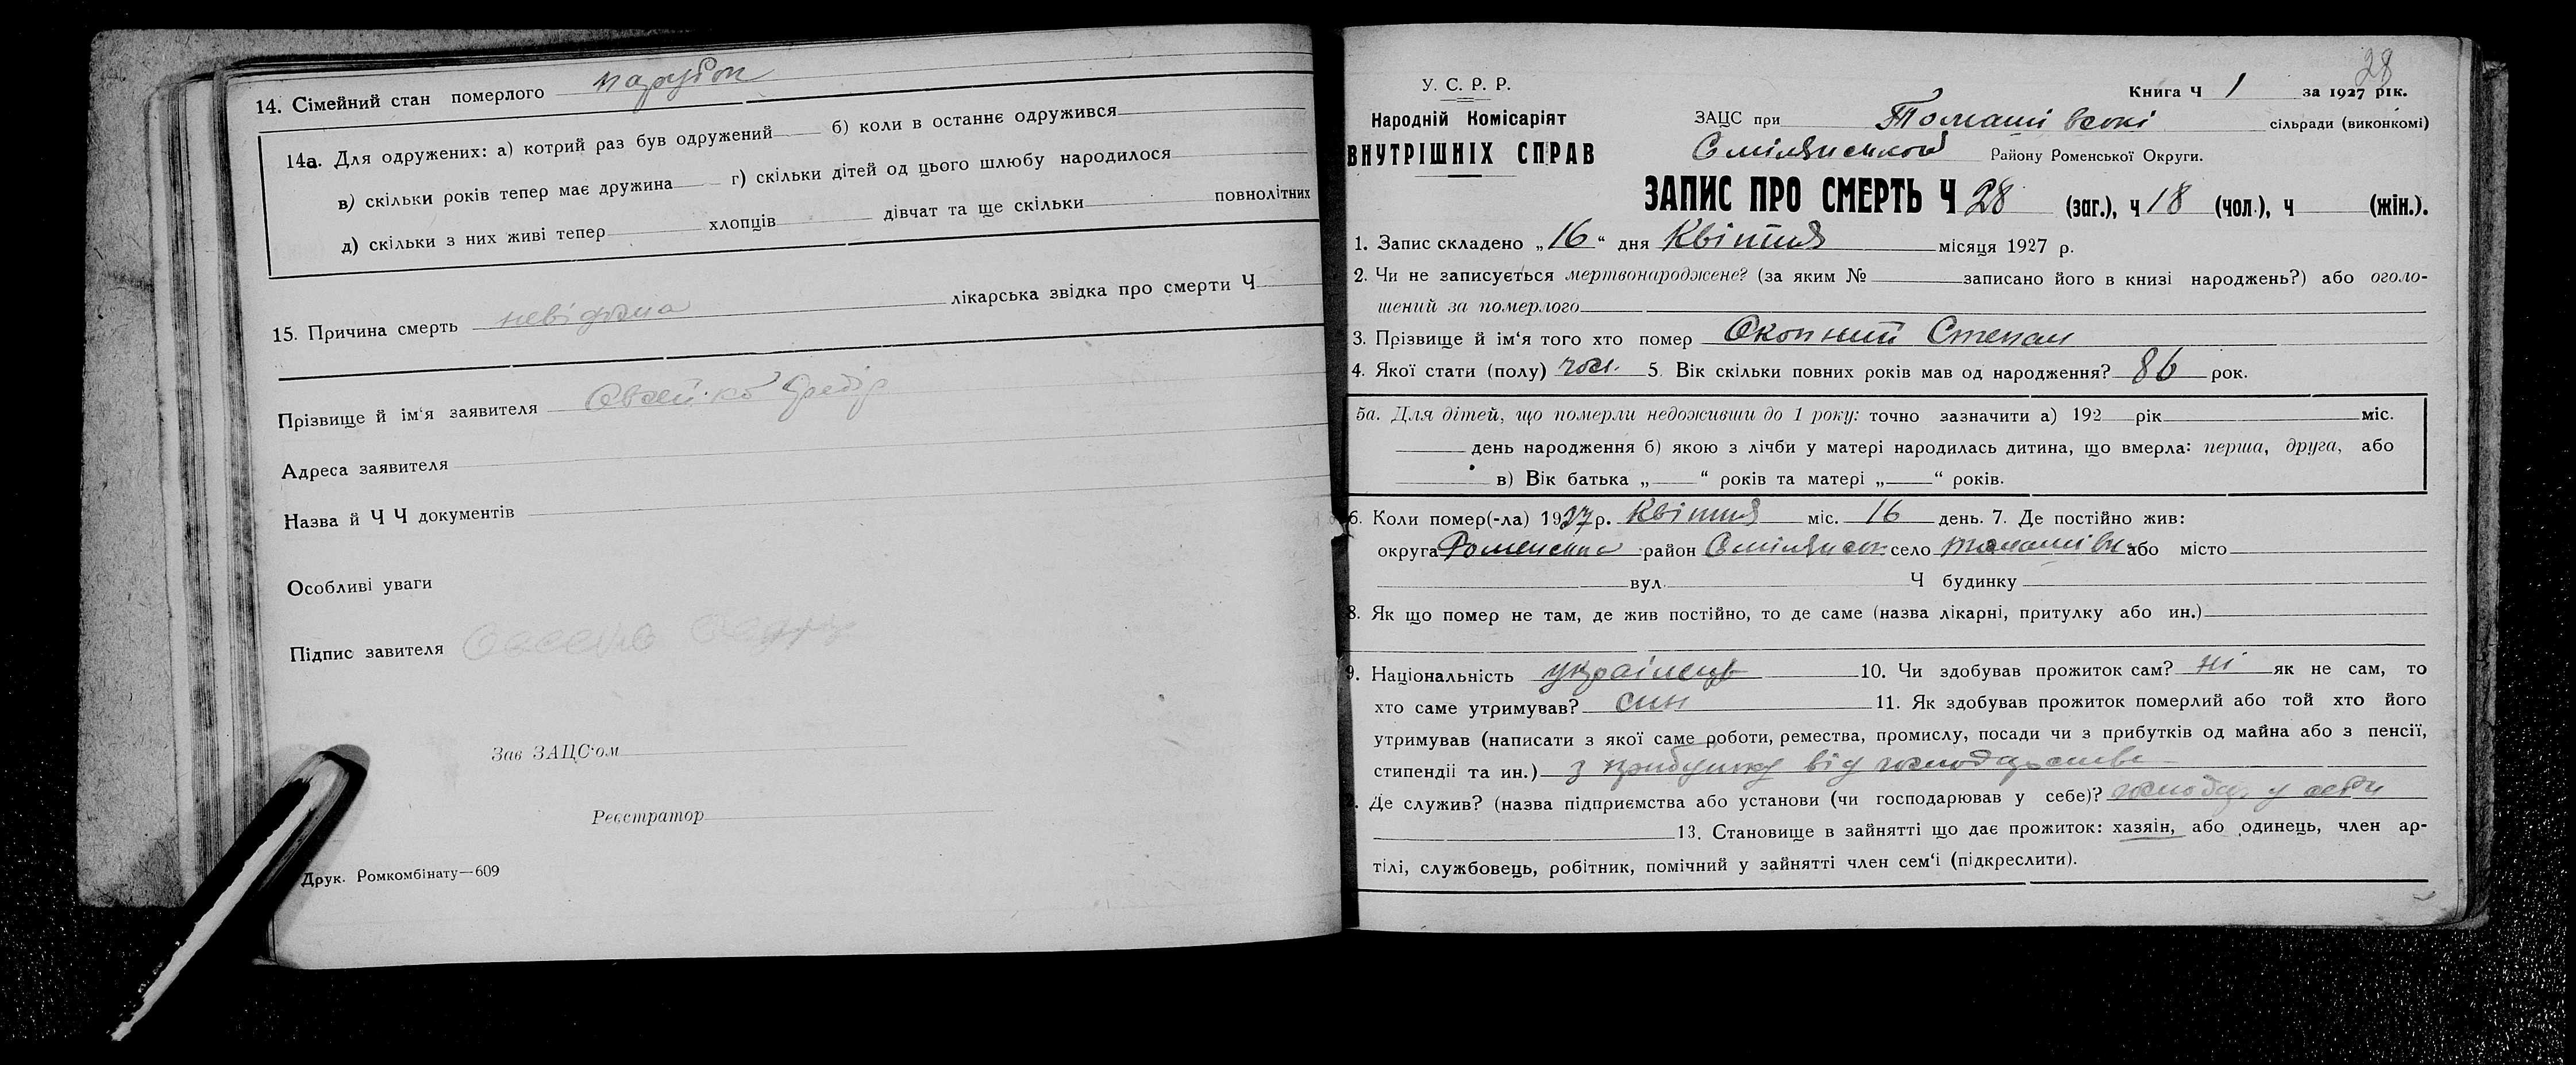 14. Сімейний стан померлого парубок
14а. Для одружених: а) котрий раз був одружений б) коли в останнє одружився
в) скільки років тепер має дружина г) скільки дітей од цього шлюбу народилося
д) скільки з них живі тепер хлопців дівчат та ще скільки повнолітних
15. Причина смерть невідома лікарська звідка про смерти Ч
Прізвище й ім'я заявителя
Адреса заявителя
Назва й Ч Ч документів
Особливі уваги
Підпис завителя
Зав ЗАЦС'ом
Реєстратор
Друк. Ромкомбінату—609
28
У. С. Р. Р.
Книга Ч 1 за 1927 рік.
Народній Комісаріят
ВНУТРІШНІХ СПРАВ
ЗАЦС при сільради (виконкомі)
Смілянського Району Роменської Округи.
ЗАПИС ПРО СМЕРТЬ Ч 28 (заг.), ч 18 (чол.), ч (жін.).
1. Запис складено „16“ дня Квітня місяця 1927 р.
2. Чи не записується мертвонароджене? (за яким № записано його в книзі народжень?) або оголо-
шений за померлого
3. Прізвище й ім‘я того хто помер Окопний Степан
4. Якої стати (полу) чол. 5. Вік скільки повних років мав од народження? 86 рок.
5а. Для дітей, що померли недоживши до 1 року: точно зазначити а) 192 рік міс.
день народження б) якою з лічби у матері народилась дитина, що вмерла: перша, друга, або
в) Вік батька „ “ років та матері „ “ років.
6. Коли помер(-ла) 1927 р. Квітня міс. 16 день. 7. Де постійно жив:
округа Роменська район село або місто
вул. Ч будинку
8. Як що помер не там, де жив постійно, то де саме (назва лікарні, притулку або ин.)
9. Національність українець 10. Чи здобував прожиток сам? ні як не сам, то
хто саме утримував? син 11. Як здобував прожиток померлий або той хто його
утримував (написати з якої саме роботи, ремества, промислу, посади чи з прибутків од майна або з пенсії,
стипендії та ин.) з прибутку від господарства
Де служив? (назва підприємства або установи (чи господарював у себе)? господар у себе
13. Становище в зайнятті що дає прожиток: хазяін, або одинець, член ар-
тілі, службовець, робітник, помічний у зайнятті член сем‘і (підкреслити).